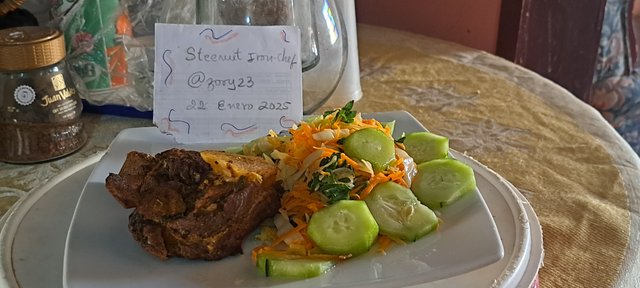 Steemit Iron-chef
@zory23
22 Enero 2025
Juan Valdez